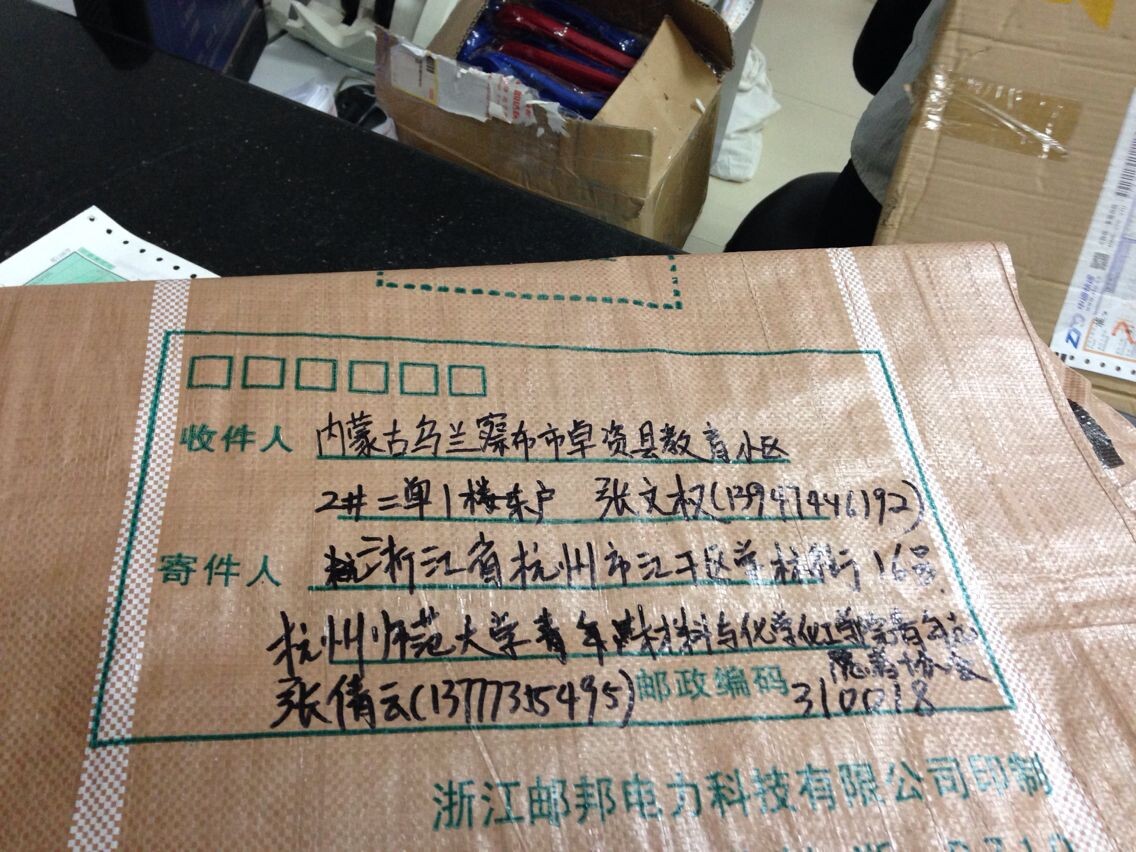 收件人 内蒙古乌兰察布市卓资县教育小区
2#二单1楼东户 张文权(13947446192)
寄件人 浙江省杭州市江干区学林街16号
杭州师范大学青年材料与化学化工学院青年志
愿者协会
张倩云(13777355495) 邮政编码 310018
浙江邮邦电力科技有限公司印制